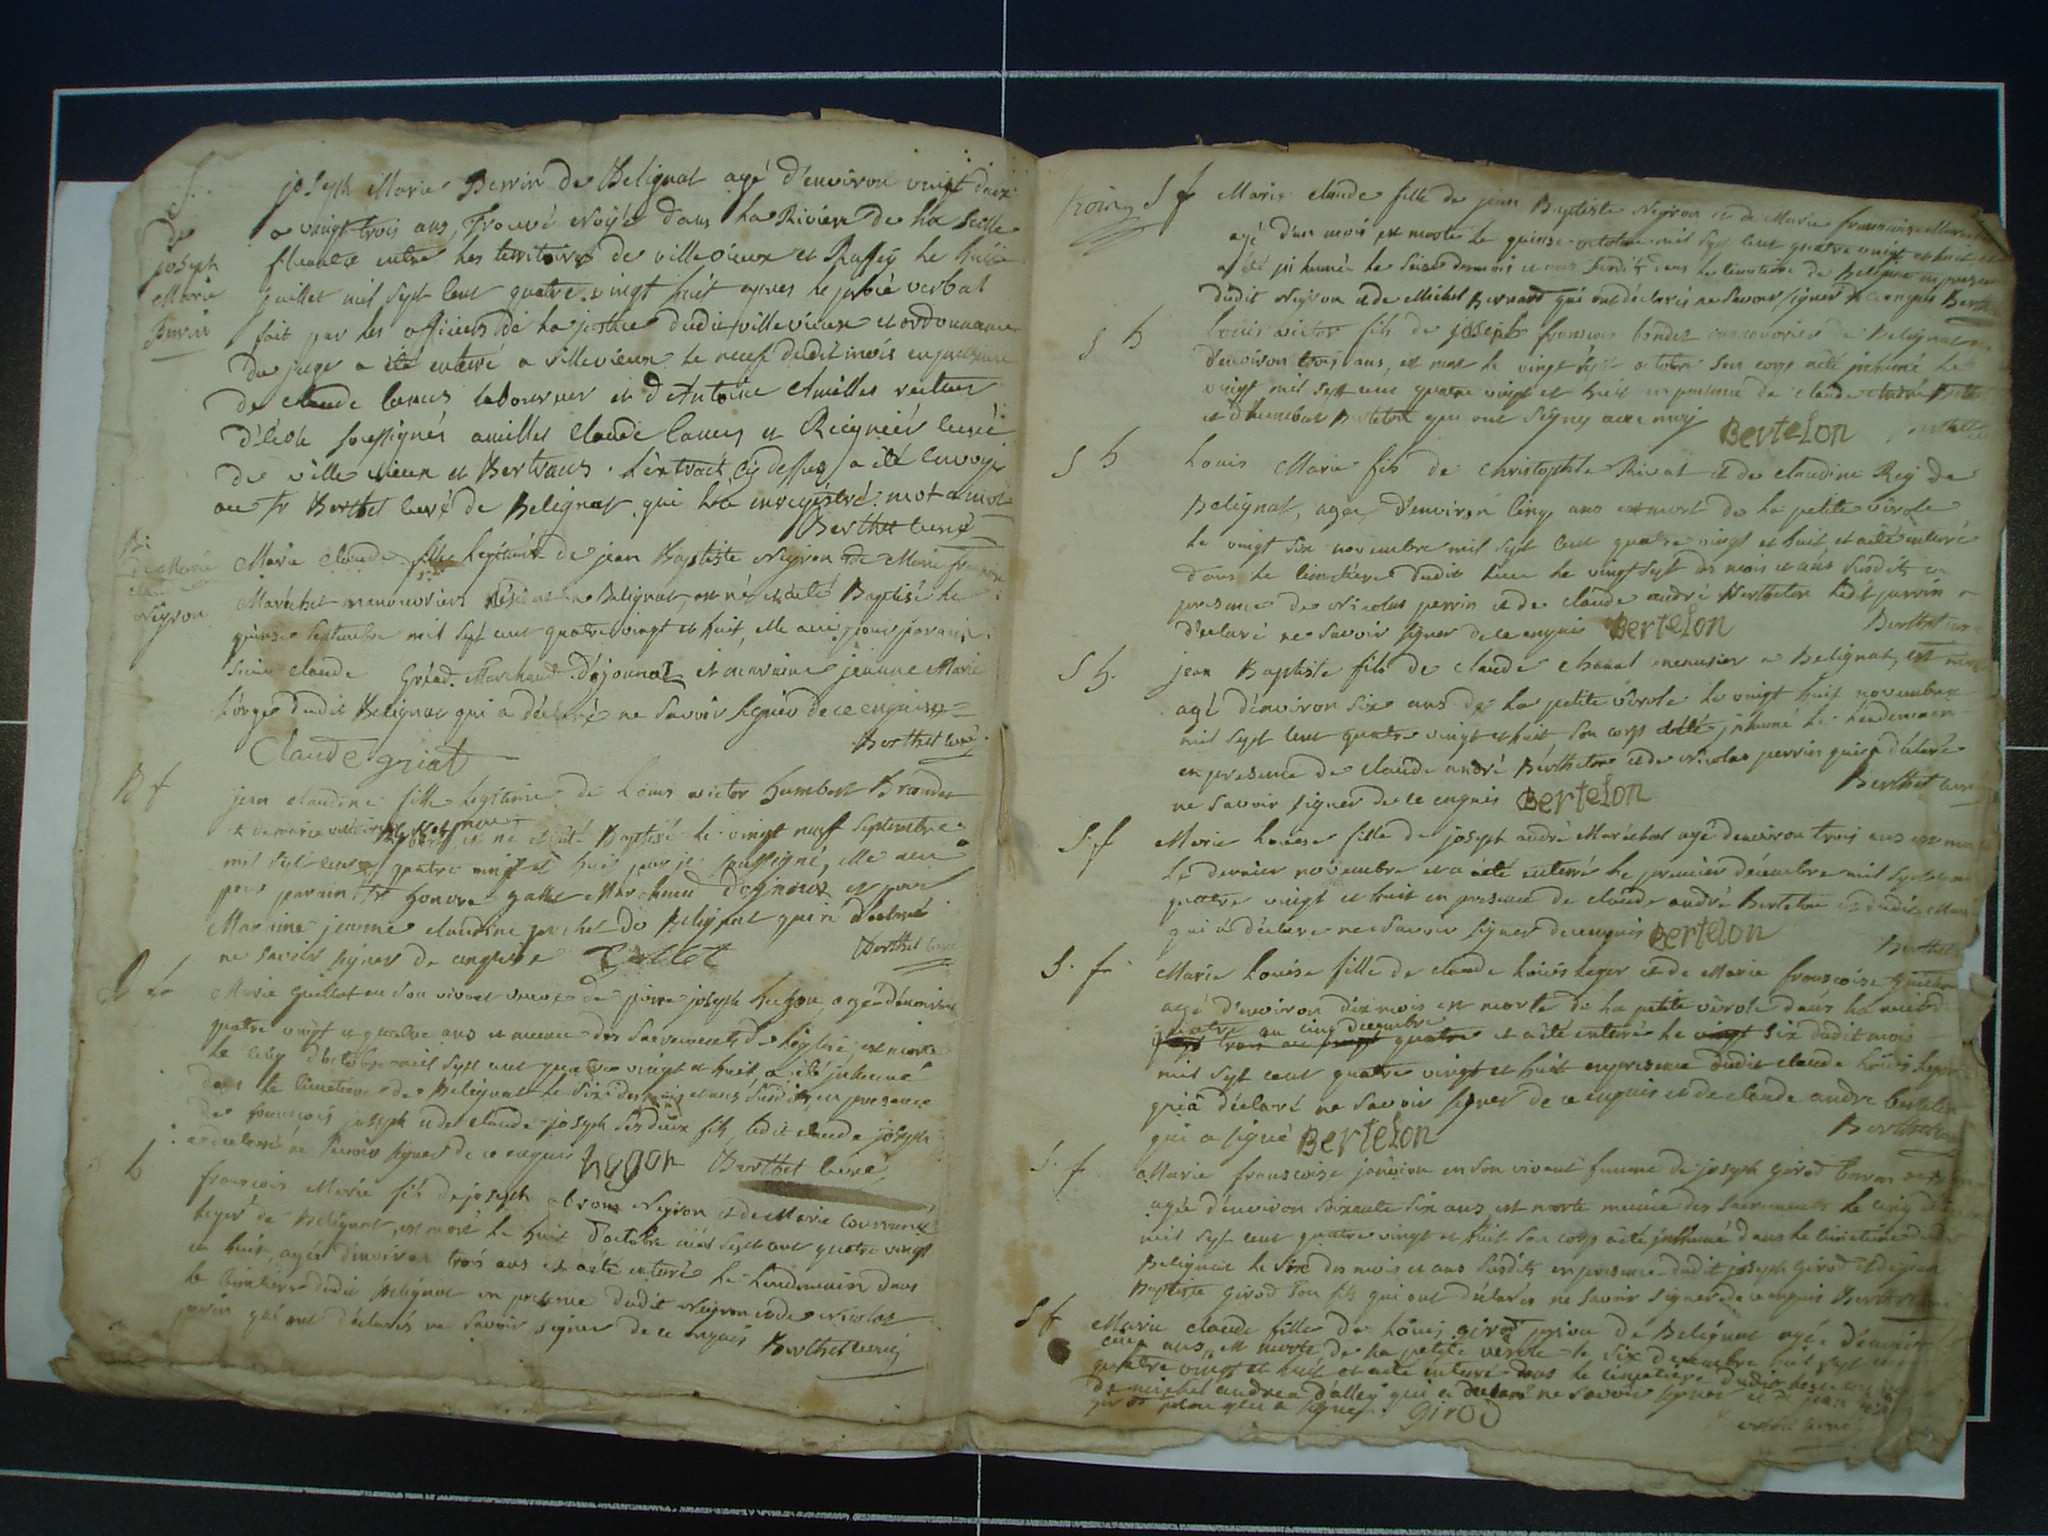 S.
joseph Marie Perrin de Belignat agé d'environ vingt deux
a vingt trois ans, Trouvé Noÿé dans la Riviere de la Seille
fluante entre les territoires de villevieux et Ruffey le huit
juillet mil sept cent quatre vingt huit apres le procé verbal
fait par les officiers de la justice dudit villevieux et ordonnance
du juge a été enterré a villevieux le neuf dudit mois en presence
de claude Camus laboureur et d'Antoine Amilles recteur
d'école soussignés amilles Claude Camus et curé
de ville vieux et Bertrans. L'extrait cy dessus a été envoyé
au Sr Berthet curé de Belignat qui l'a enregistré mot a mot
Berthet curé
de
joseph
Marie
Perrin
B:
de Marie
Claude
Neyron
Marie Claude fille legitime de jean Baptiste Neyron et de Marie françoise
Maréchet manouvriers résidant a Belignat, est né et a été Baptisé le
quinse septembre mil sept cent quatre vingt et huit, elle a eu pour parrain
Sieur claude Gréad Marchand d'ojonnaz et marraine jeanne Marie
dudit Belignat qui a déclaré ne savoir signer de ce enquise
Claude griat
Berthet curé
B f
jean claudine fille légitime de Louis victor humbert
né et a été Baptisé le vingt neuf septembre
mil sept cent quatre vingt et huit par je soussigné, elle a eu
pour parrain Sr honoré gallet Marchand d'ojonnaz et pour
Marraine jeanne claudine de Belignat qui a déclaré
ne savoir signer de enquise
Berthet curé
S f
Marie Guillot en son vivant veuve de pierre joseph hugon, agée d'environ
quatre vingt et quatre ans et munie des Sacrements de l'église, est morte
le cinq d'octobre mil sept cent quatre vingt et huit a été inhumé
dans le cimetiere de Belignat le six des mois et ans susdits, en presence
de françois joseph et de claude joseph ses deux fils, ledit claude joseph
a déclaré ne savoir signer de ce enquis hugon Berthet curé
françois Marie fils de joseph Neyron et de Marie
leger de Belignat, est mort le huit d'octobre mil sept cent quatre vingt
et huit, agée d'environ trois ans et a été enterré le lendemain dans
le cimetiere dudit Belignat en presence dudit Neyron et de Nicolas
perrin qui ont déclarés ne savoir signer de ce enquis Berthet curé
S f
Marie claude fille de jean Baptiste Neyron et de Marie françoise
agé d'un mois est morte le quinse octobre mil sept cent quatre vingt et huit et
a été inhumée le seise des mois et ans susdits dans le cimetiere de Belignat en presence
dudit Neyron et de Michel Bernard qui ont déclarés ne savoir signer de ce enquis
S h
Louis victor fils de joseph françois manouvrier de Belignat
d'environ trois ans, est mort le vingt sept octobre son corps a été inhumé le
vingt mil sept cent quatre vingt et huit en presence de claude andré
et d'humbert qui ont signez avec moi Bertelon
S h
Louis Marie fils de christophle Rivat et de claudine Rey de
Belignat, agée d'environ cinq ans est mort de la petite vérole
le vingt six novembre mil sept cent quatre vingt et huit et a été enterré
dans le cimetiere dudit lieu le vingt sept des mois et ans susdits en
presence de Nicolas perrin et de claude andré Berthelon ledit perrin a
déclaré ne savoir signer de ce enquis Bertelon Berthet
S h.
jean Baptiste fils de claude menusier a Belignat, est mort
agé d'environ six ans de la petite vérole le vingt huit novembre
mil sept cent quatre vingt et huit son corps a été inhumé le lendemain
en presence de claude andré Berthelon et de Nicolas perrin qui a déclaré
ne savoir signer de ce enquis Bertelon Berthet curé
S f
Marie Louise fille de joseph andré Maréchal agé d'environ trois ans est morte
le dernier novembre et a été enterré le premier décembre mil sept cent
quatre vingt et huit en presence de claude andré Bertelon et dudit
qui a déclaré ne savoir signer de ce enquis Bertelon
S. f.
Marie Louise fille de claude Louis Leger et de Marie françoise
agé d'environ dix mois est morte de la petite vérole dans la nuit
quatre au cinq decembre
trois au quatre et a été enterré le vingt six dudit mois
mil sept cent quatre vingt et huit en presence dudit claude Louis Leger
qui a déclaré ne savoir signer de ce enquis et de claude andre bertelon
qui a signé Bertelon
S. f
Marie françoise en son vivant femme de joseph Girod
agée d'environ soixante six ans est morte munie des sacrements le cinq
mil sept cent quatre vingt et huit son corps a été inhumé dans le cimetiere
Belignat le six des mois et ans susdits en presence dudit joseph Girod et de jean
Baptiste Girod son fils qui ont déclarés ne savoir signer de ce enquis
S f
Marie claude fille de Louis girod de Belignat agée d'environ
cinq ans, est morte de la petite verole le six decembre mil sept cent
quatre vingt et huit et a été enterré dans le cimetiere dudit
de michel qui a declaré ne savoir signer et de jean
qui a signez. Girod